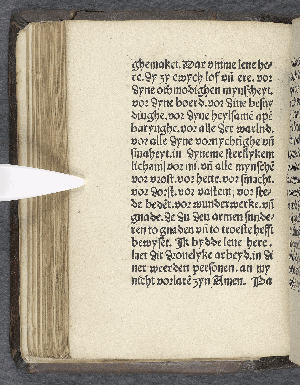 ghemaket. Dar vmme leue he-
re. dy zy ewych lof vn̄ ere. vor
dyne othmodighen mynscheyt.
vor dyne boerd. vor dine besny
dinghe. vor dyne heylsame apē
barynghe. vor alle der warlud.
vor alle dyne vornychtighe vn̄
smaheyt. in dyneme sterflykem
licham vor mi. vn̄ alle mynschē
vor vrost. vor hette. vor smacht.
vor dorst. vor vastem. vor
de bedēt. vor wunderwerke. vn̄
gnade. de du den armen sunde-
ren to gnaden vn̄ to troeste hefft
bewyset. Ik bydde leue here.
laet dit drouelyke arbeyd. in d
ner weerden personen. an my
nicht vorlarē zyn Amen. Da